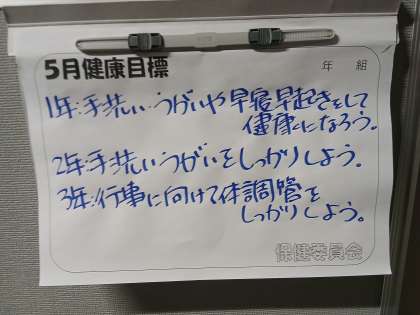 5月健康目標
年 組
1年:手洗い うがいや早寝早起きをして
健康になろう。
2年:手洗いうがいをしっかりしよう。
3年:行事に向けて体調管を
しっかりしよう。
保健委員会